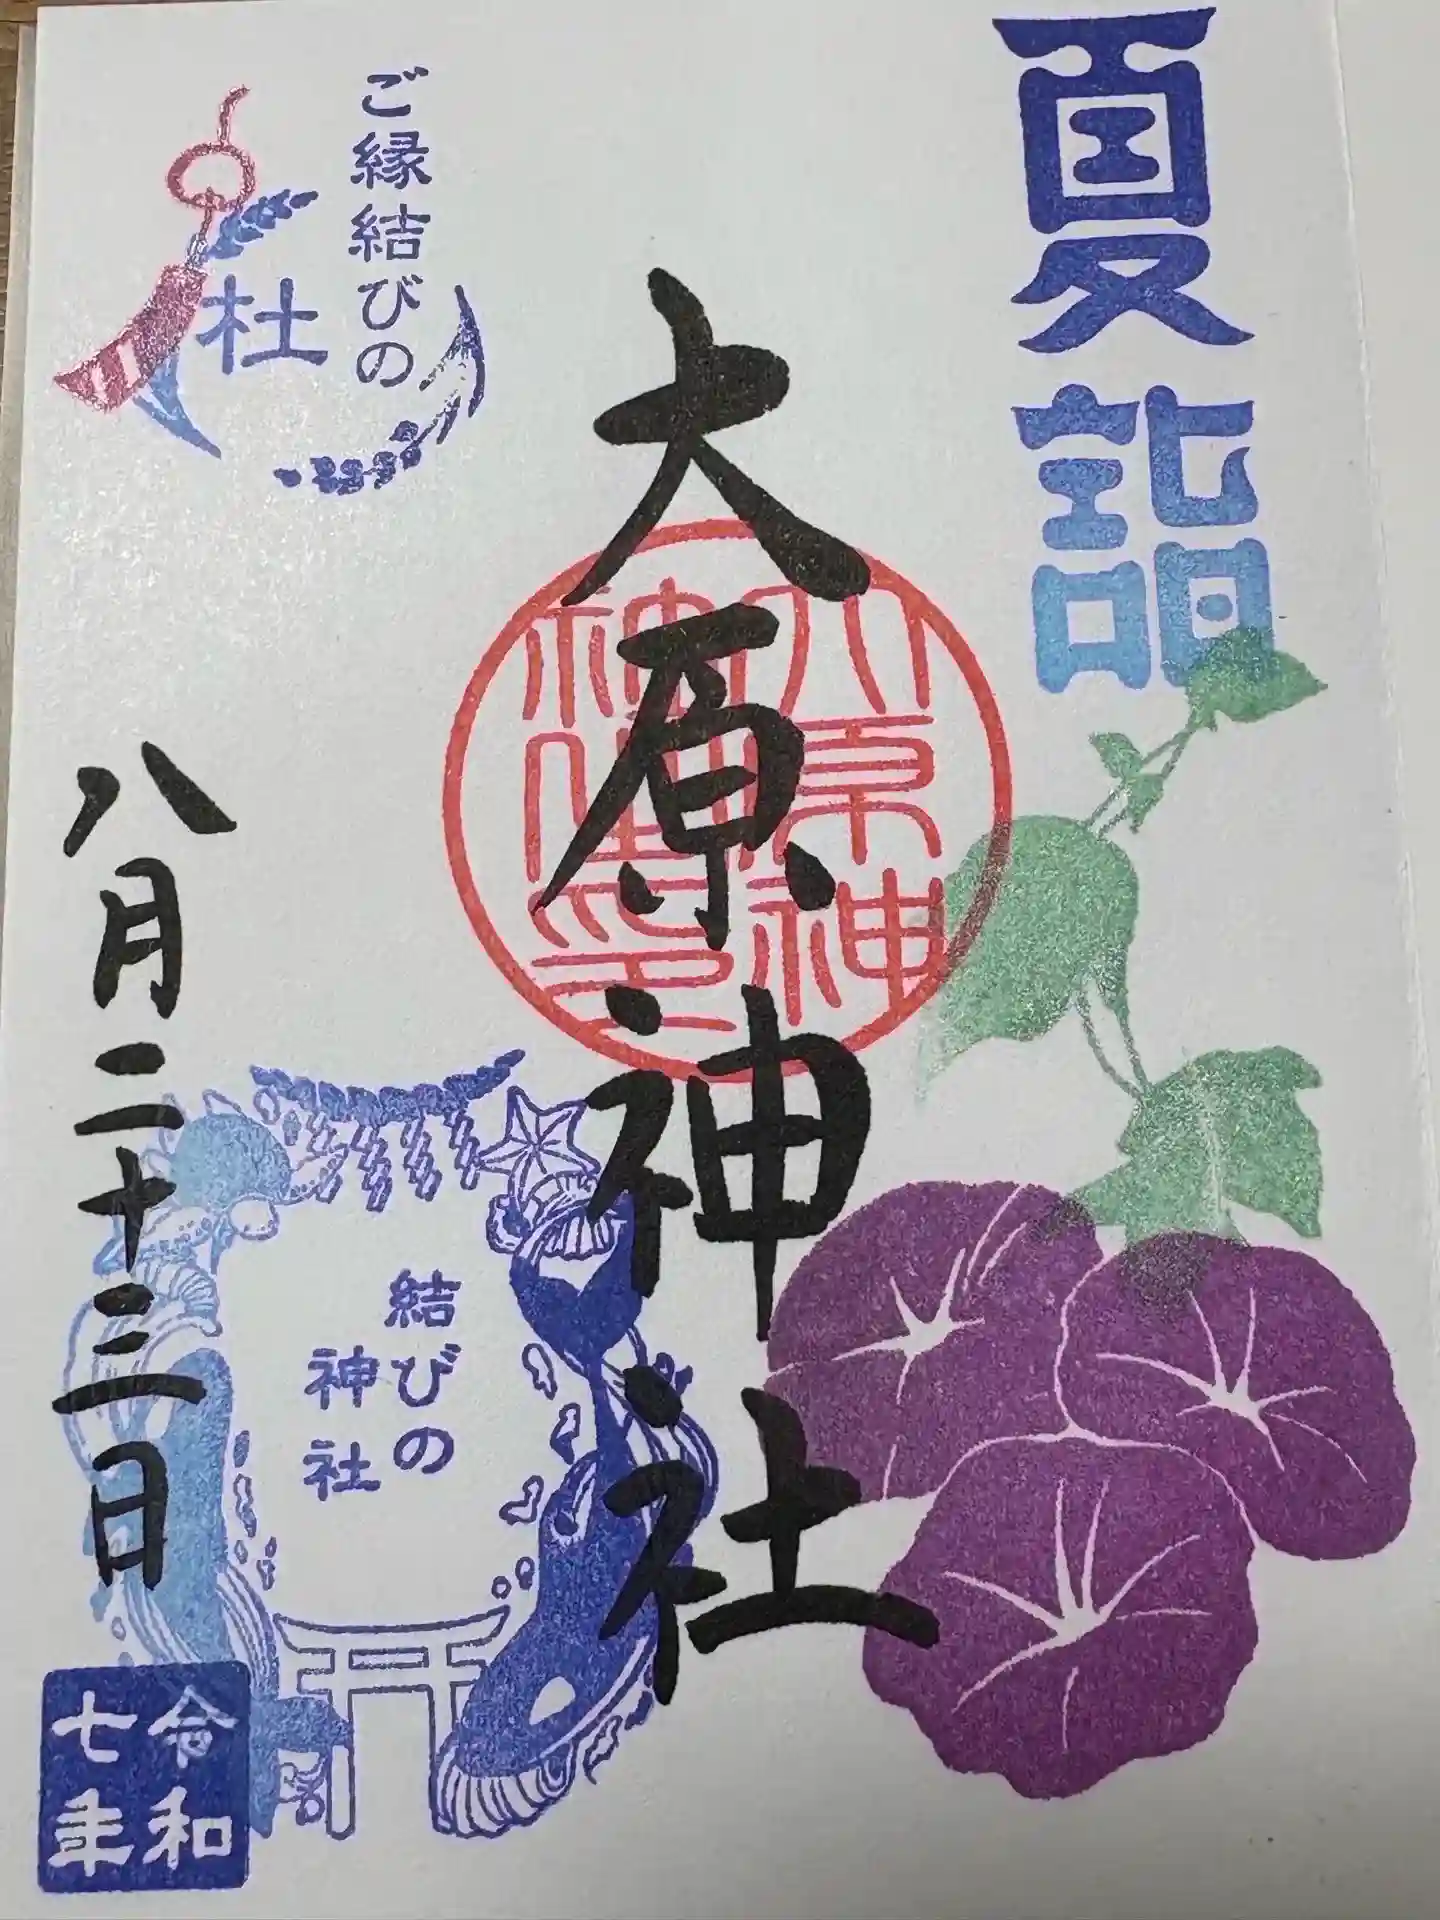 夏詣
大原神社
大原神社神璽
ご縁結びの
杜
結びの
神社
八月二十三日
令和
七年